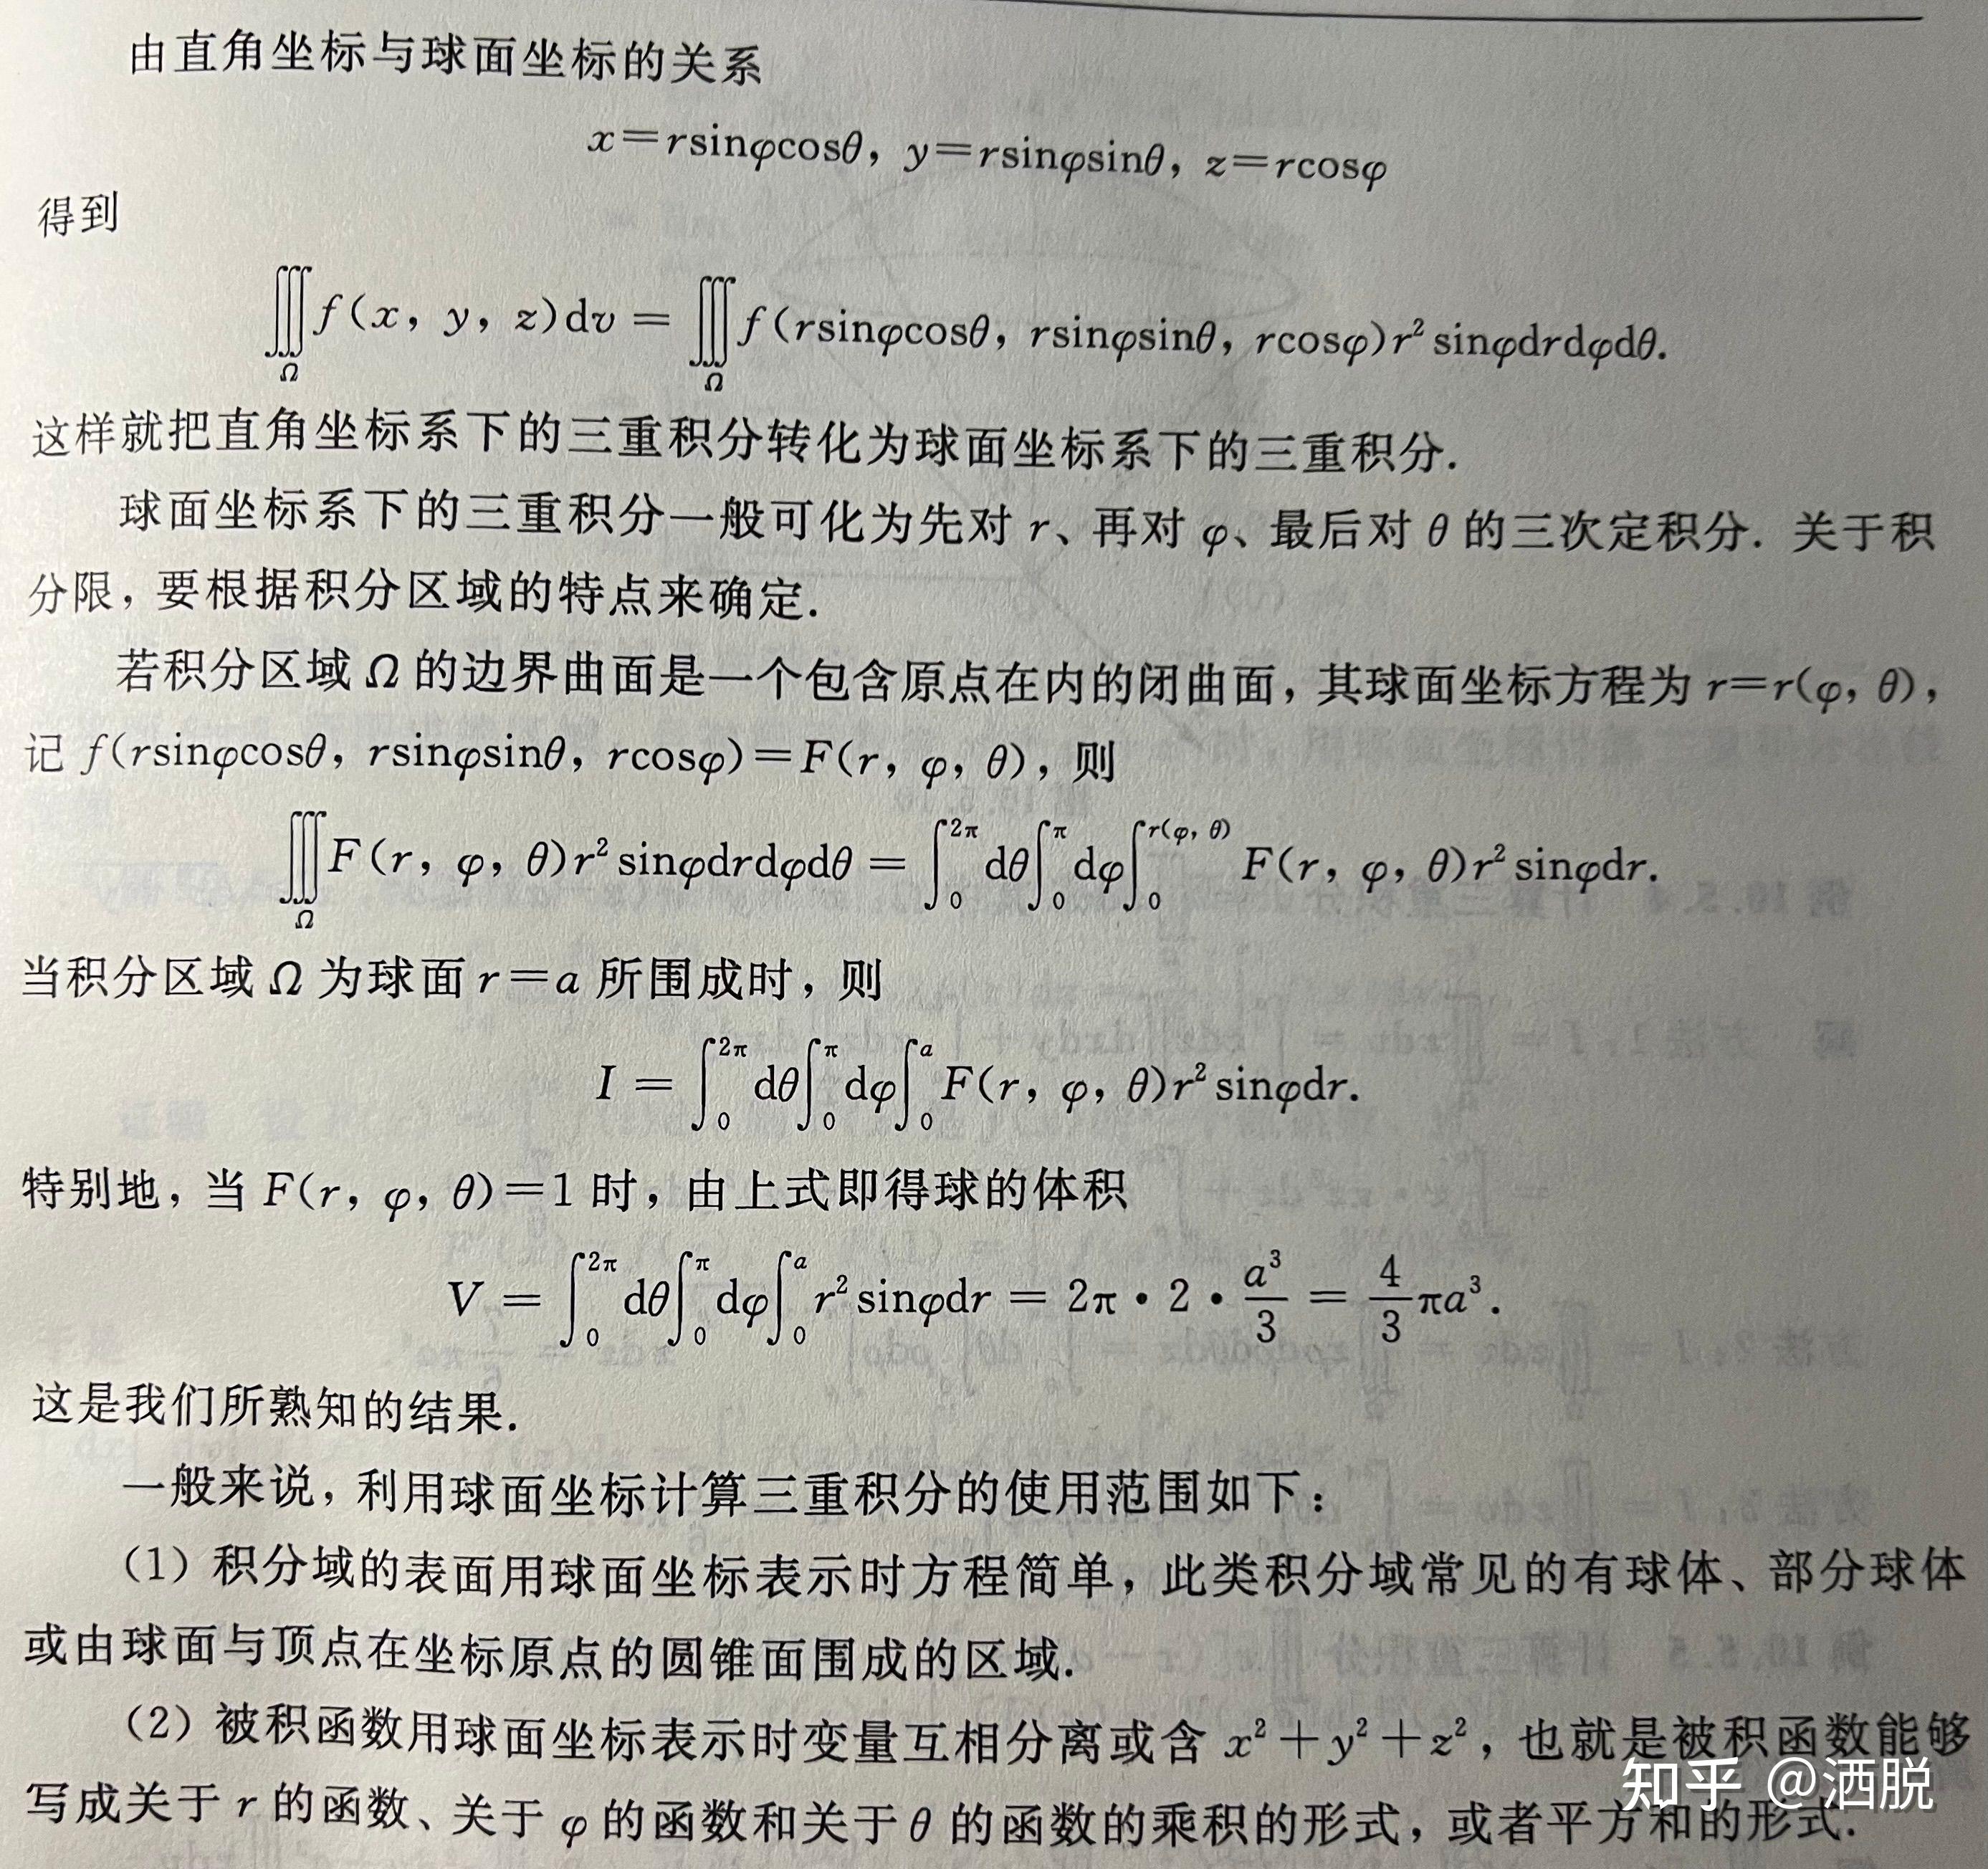 由直角坐标与球面坐标的关系
x=rsinφcosθ, y=rsinφsinθ, z=rcosφ
得到
∭_Ω f(x, y, z)dv = ∭_Ω f(rsinφcosθ, rsinφsinθ, rcosφ)r² sinφdrdφdθ.
这样就把直角坐标系下的三重积分转化为球面坐标系下的三重积分.
球面坐标系下的三重积分一般可化为先对 r、再对 φ、最后对 θ 的三次定积分. 关于积
分限，要根据积分区域的特点来确定.
若积分区域 Ω 的边界曲面是一个包含原点在内的闭曲面，其球面坐标方程为 r=r(φ, θ)，
记 f(rsinφcosθ, rsinφsinθ, rcosφ)=F(r, φ, θ)，则
∭_Ω F(r, φ, θ)r² sinφdrdφdθ = ∫_0^{2π} dθ∫_0^π dφ∫_0^{r(φ, θ)} F(r, φ, θ)r² sinφdr.
当积分区域 Ω 为球面 r=a 所围成时，则
I = ∫_0^{2π} dθ∫_0^π dφ∫_0^a F(r, φ, θ)r² sinφdr.
特别地，当 F(r, φ, θ)=1 时，由上式即得球的体积
V = ∫_0^{2π} dθ∫_0^π dφ∫_0^a r² sinφdr = 2π · 2 · a³/3 = 4/3 πa³.
这是我们所熟知的结果.
一般来说，利用球面坐标计算三重积分的使用范围如下：
（1）积分域的表面用球面坐标表示时方程简单，此类积分域常见的有球体、部分球体
或由球面与顶点在坐标原点的圆锥面围成的区域.
（2）被积函数用球面坐标表示时变量互相分离或含 x²+y²+z²，也就是被积函数能够
写成关于 r 的函数、关于 φ 的函数和关于 θ 的函数的乘积的形式，或者平方和的形式.
知乎 @洒脱